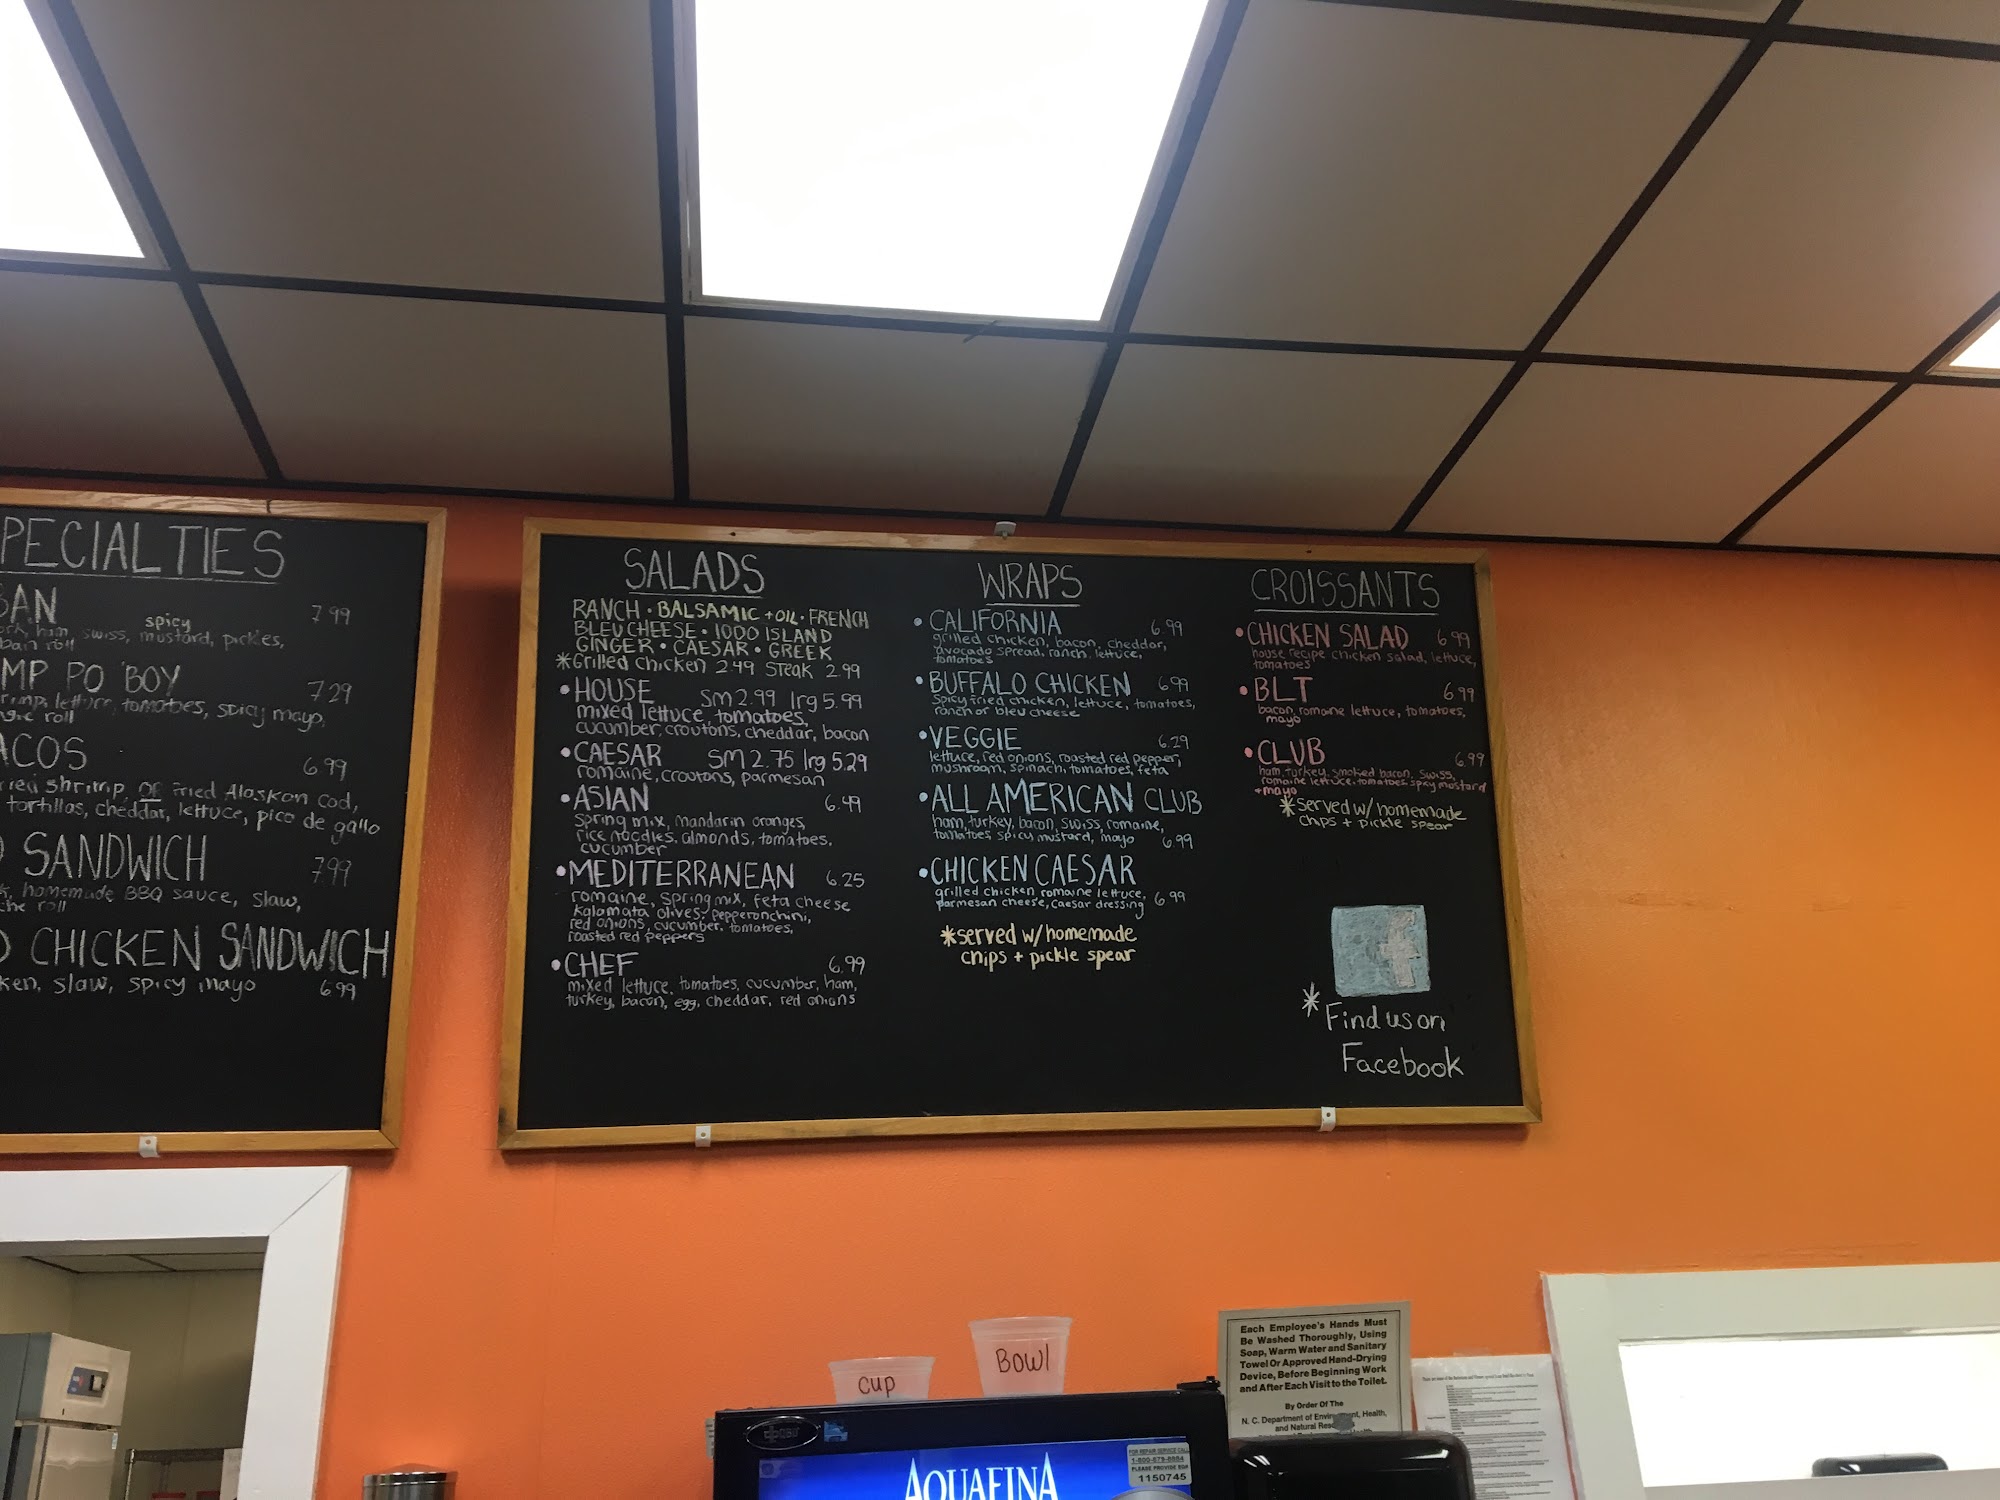 PECIALTIES
BAN 7.99
spicy
ork, ham, swiss, mustard, pickles,
ban roll
MP PO'BOY 7.29
rimp, lettuce, tomatoes, spicy mayo,
gie roll
ACOS 6.99
ried shrimp OR Fried Alaskan cod,
tortillas, cheddar, lettuce, pico de gallo
SANDWICH 7.99
k, homemade BBQ sauce, slaw,
che roll
D CHICKEN SANDWICH
ken, slaw, spicy mayo 6.99
SALADS
RANCH • BALSAMIC + OIL • FRENCH
BLEU CHEESE • 1000 ISLAND
GINGER • CAESAR • GREEK
*Grilled chicken 2.49 Steak 2.99
•HOUSE Sm 2.99 lrg 5.99
mixed lettuce, tomatoes,
cucumber, croutons, cheddar, bacon
•CAESAR Sm 2.75 lrg 5.29
romaine, croutons, parmesan
•ASIAN 6.49
spring mix, mandarin oranges,
rice noodles, almonds, tomatoes,
cucumber
•MEDITERRANEAN 6.25
romaine, spring mix, feta cheese
kalamata olives, pepperonchini,
red onions, cucumber, tomatoes,
roasted red peppers
•CHEF 6.99
mixed lettuce, tomatoes, cucumber, ham,
turkey, bacon, egg, cheddar, red onions
WRAPS
•CALIFORNIA 6.99
grilled chicken, bacon, cheddar,
avocado spread, ranch, lettuce,
tomatoes
•BUFFALO CHICKEN 6.99
spicy fried chicken, lettuce, tomatoes,
ranch or bleu cheese
•VEGGIE 6.29
lettuce, red onions, roasted red pepper,
mushroom, spinach, tomatoes, feta
•ALL AMERICAN CLUB
ham, turkey, bacon, swiss, romaine,
tomatoes, spicy mustard, mayo 6.99
•CHICKEN CAESAR
grilled chicken romaine lettuce,
parmesan cheese, caesar dressing 6.99
*served w/ homemade
chips + pickle spear
CROISSANTS
•CHICKEN SALAD 6.99
house recipe chicken salad, lettuce,
tomatoes
•BLT 6.99
bacon, romaine lettuce, tomatoes,
mayo
•CLUB 6.99
ham, turkey, smoked bacon, swiss,
romaine lettuce, tomatoes, spicy mustard
+ mayo
*served w/ homemade
chips + pickle spear
f
*Find us on
Facebook
cup
Bowl
AQUAFINA
FOR REPAIR SERVICE CALL
1-800-678-8884
PLEASE PROVIDE EQ#
1150745
Each Employee's Hands Must
Be Washed Thoroughly, Using
Soap, Warm Water and Sanitary
Towel Or Approved Hand-Drying
Device, Before Beginning Work
and After Each Visit to the Toilet.
By Order Of The
N. C. Department of Environment, Health,
and Natural